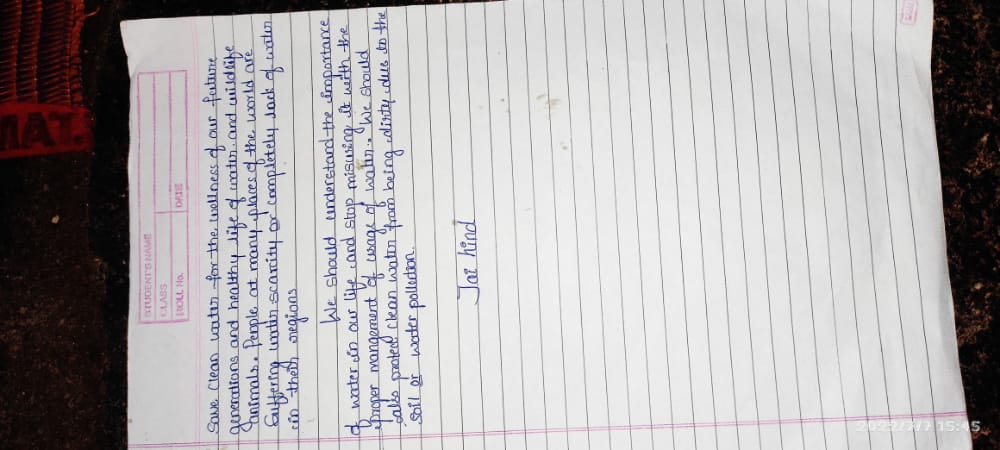 STUDENT'S NAME
CLASS
ROLL No. DATE
Save clean water for the wellness of our future
generations and healthy life of water and wildlife
animals. People at many places of the world are
suffering water scarity or completely lack of water
in their regions
We should understand the importance
of water in our life and stop misusing it with the
proper mangement of usage of water. We should
also protect clean water from being dirty due to the
soil or water pollution.
Jai hind
MAT.
2022/7/7 15:45